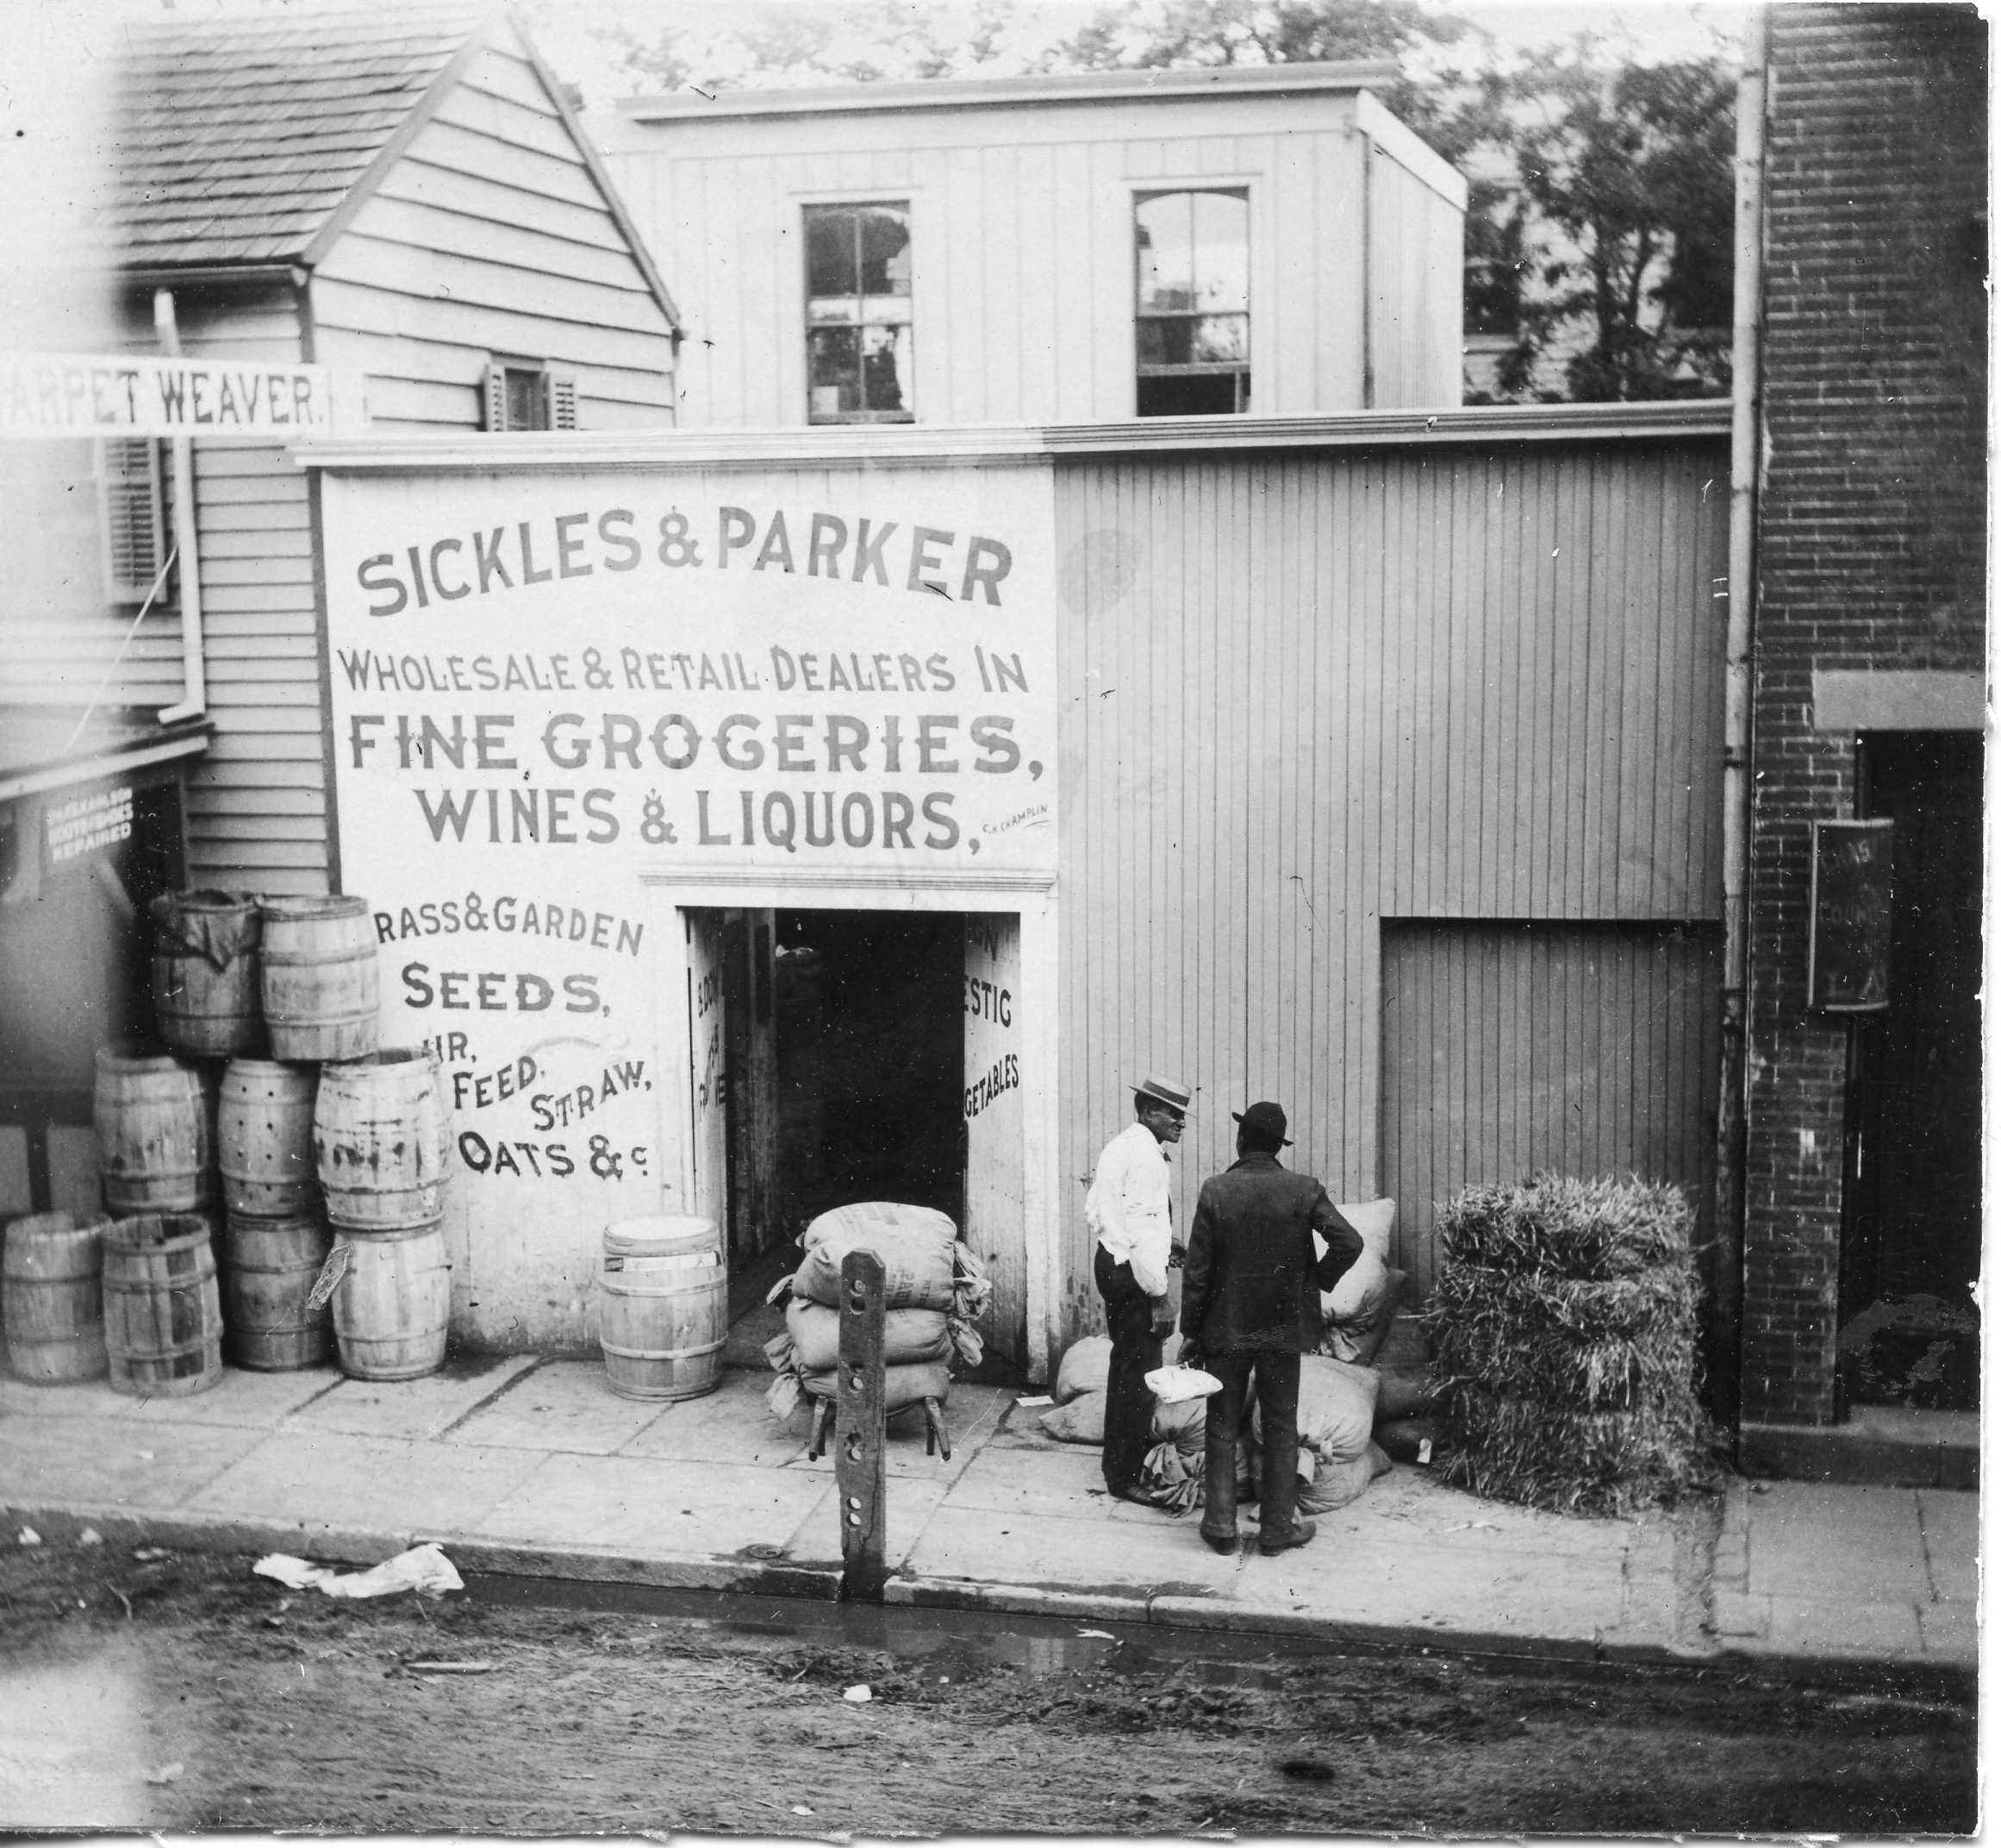 ARPET WEAVER.
SICKLES & PARKER
WHOLESALE & RETAIL DEALERS IN
FINE GROGERIES,
WINES & LIQUORS,
C.H. CHAMPLIN
RASS & GARDEN
SEEDS,
UR,
FEED,
STRAW,
OATS & C.
ESTIG
GETABLES
REPAIRED